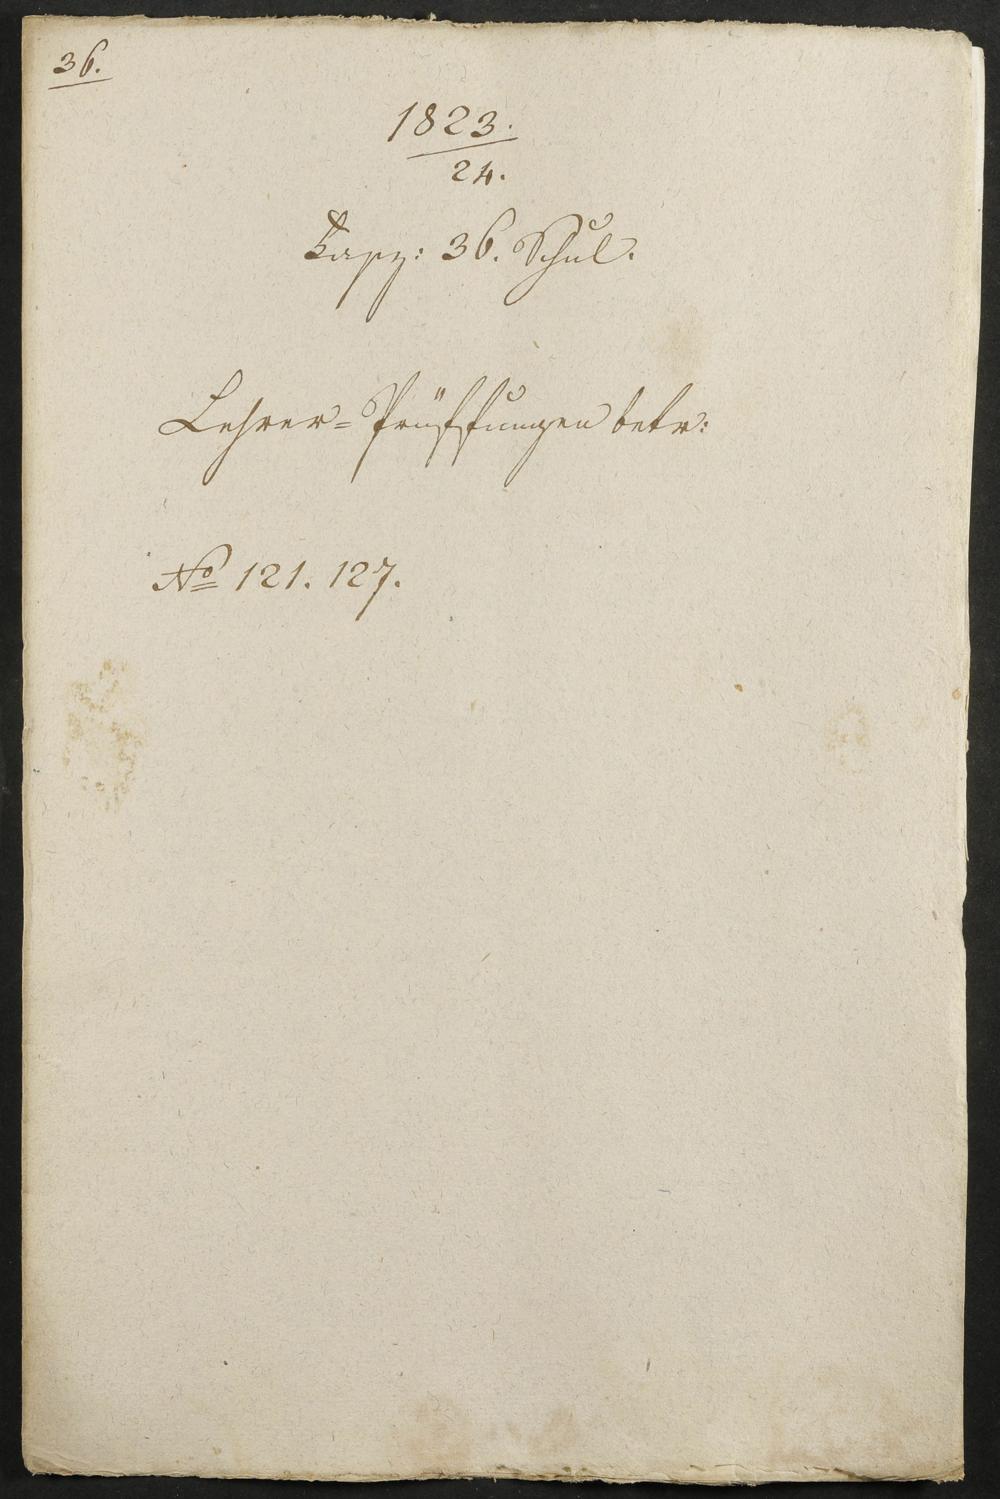 36.
1823.
24.
36. Schul.
Lehrer=Prüffungen betr:
No 121. 127.